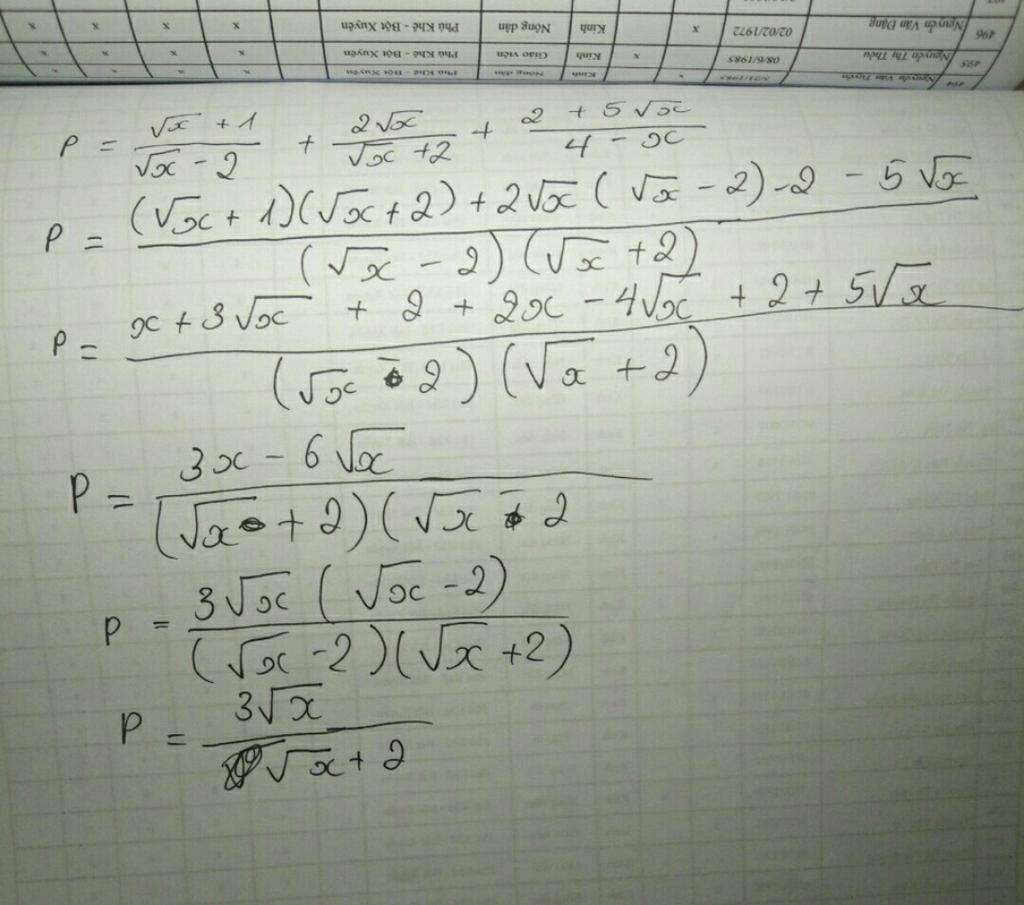 496 Nguyễn Văn Đăng 02/02/1972 x Kinh Nông dân Phú Khê - Bột Xuyên x x x x
495 Nguyễn Thị Thêu 08/6/1985 x Kinh Giáo viên Phú Khê - Bột Xuyên x x x x
494 Nguyễn Văn Tuyên x Kinh Nông dân Phú Khê - Bột Xuyên x x x x
P = (√x + 1)/(√x - 2) + (2√x)/(√x + 2) + (2 + 5√x)/(4 - x)
P = ((√x + 1)(√x + 2) + 2√x(√x - 2) - 2 - 5√x)/((√x - 2)(√x + 2))
P = (x + 3√x + 2 + 2x - 4√x + 2 + 5√x)/((√x - 2)(√x + 2))
P = (3x - 6√x)/((√x + 2)(√x - 2
P = (3√x(√x - 2))/((√x - 2)(√x + 2))
P = (3√x)/(√x + 2)